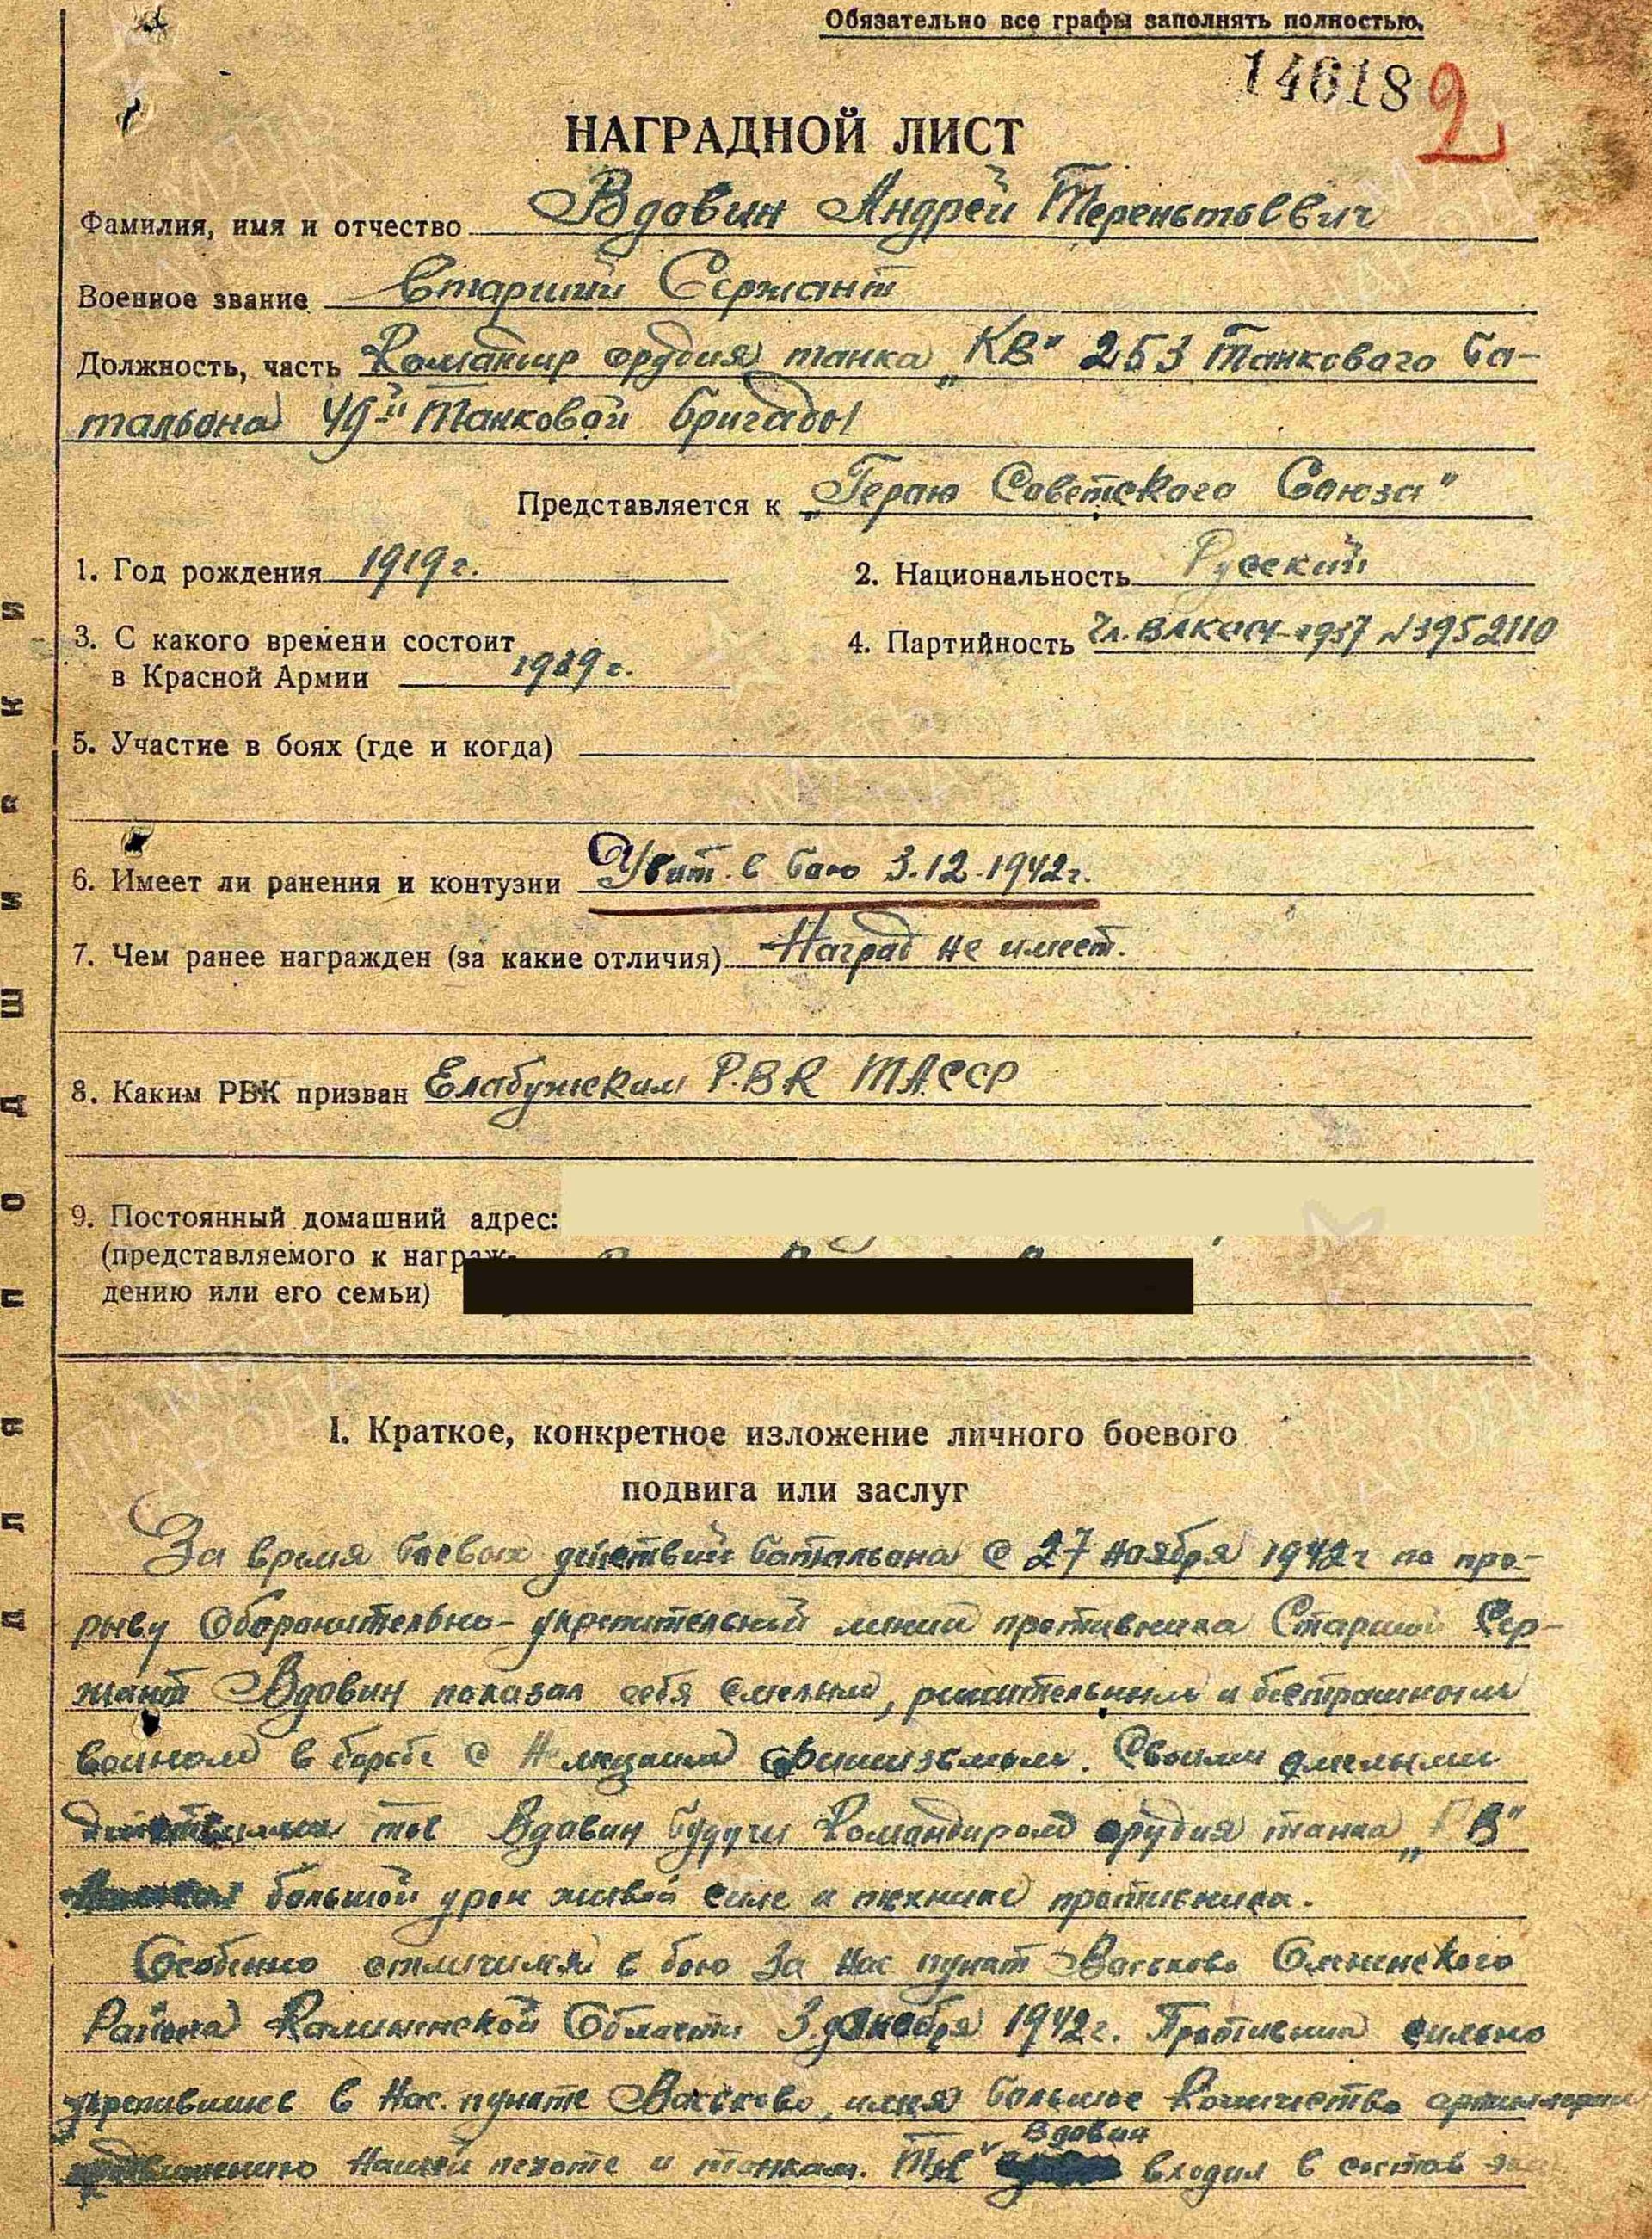 Обязательно все графы заполнять полностью.
14618 2
НАГРАДНОЙ ЛИСТ
Фамилия, имя и отчество Вдовин Андрей Терентьевич
Военное звание Старший Сержант
Должность, часть Командир орудия танка „КВ" 253 Танкового ба-
тальона 49й Танковой бригады
Представляется к „Герою Советского Союза"
1. Год рождения 1919 г.
2. Национальность Русский
3. С какого времени состоит
в Красной Армии 1939 г.
4. Партийность Чл. ВЛКСМ-1937 №3952110
5. Участие в боях (где и когда)
6. Имеет ли ранения и контузии Убит в бою 3.12.1942г.
7. Чем ранее награжден (за какие отличия) Наград не имеет.
8. Каким РВК призван Елабужским Р.В.К ТАССР
9. Постоянный домашний адрес:
(представляемого к награж-
дению или его семьи)
I. Краткое, конкретное изложение личного боевого
подвига или заслуг
За время боевых действий батальона с 27 ноября 1942г по про-
рыву Оборонительно-укрепительной линии противника Старший Сер-
жант Вдовин показал себя смелым, решительным и бестрашным
воином в борьбе с Немецким фашизмом. Своими смелыми
действиями тов Вдовин будучи Командиром орудия танка „КВ"
большой урон живой силе и технике противника.
Особенно отличился в бою за нас пункт Васьково Оленинского
Района Калининской Области 3 декабря 1942г. Противник сильно
укрепившись в нас. пункте Васьково, имея большое Количество артиллерии
нашей пехоте и танкам. Тов Вдовин входил в состав
ДЛЯ ПОДШИВКИ
ПАМЯТЬ НАРОДА